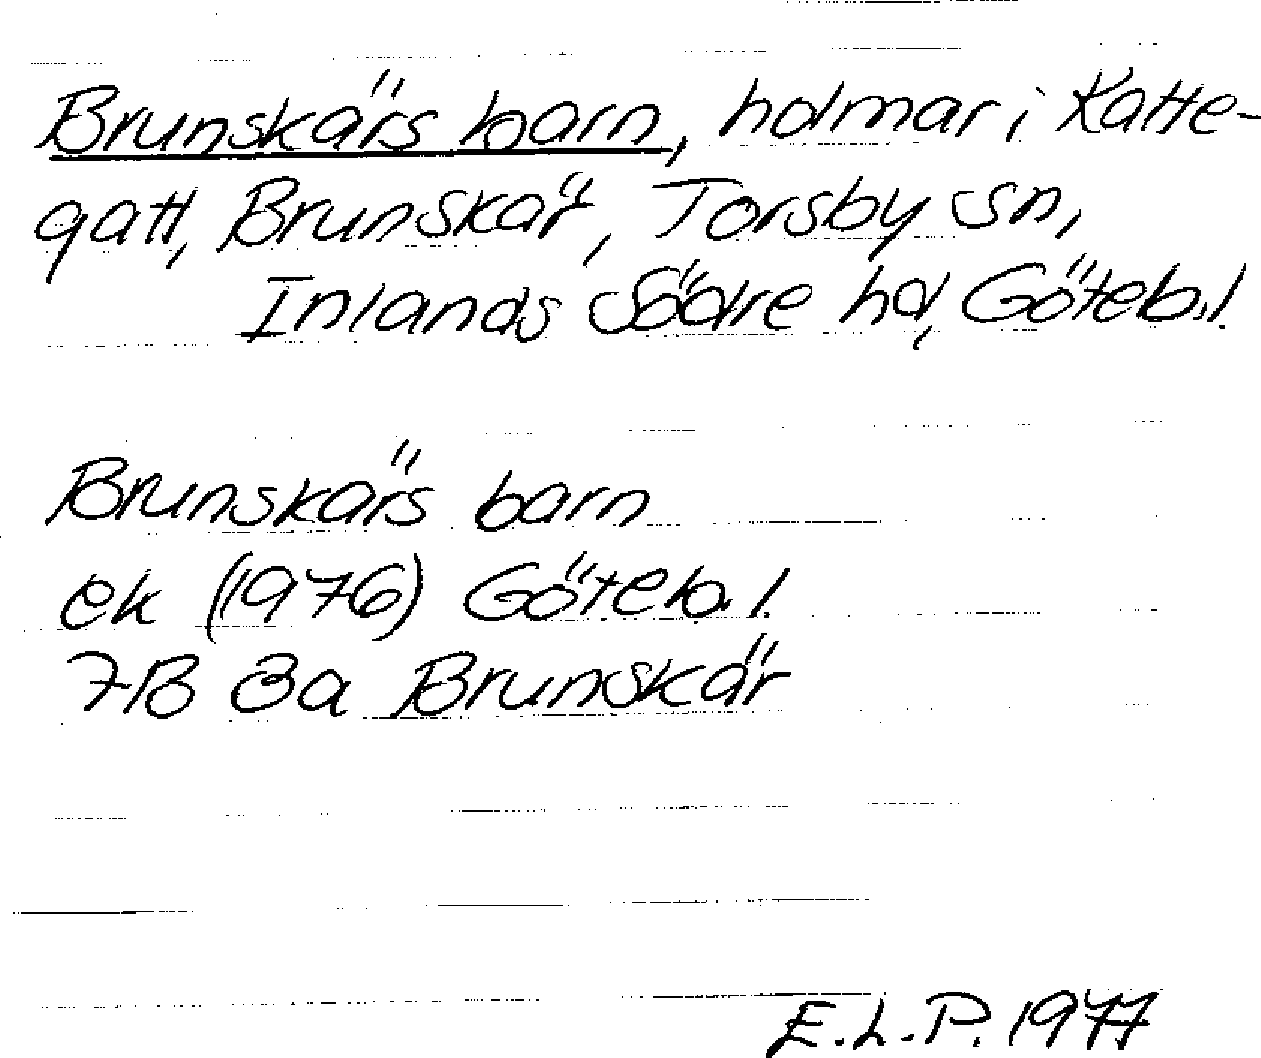 Brunskärs barn, holmar i Katte-
gatt, Brunskär, Torsby sn,
Inlands Södre hd, Göteb.l.
Brunskärs barn
ek (1976) Göteb.l.
7B 3a Brunskär
E.L.P. 1977